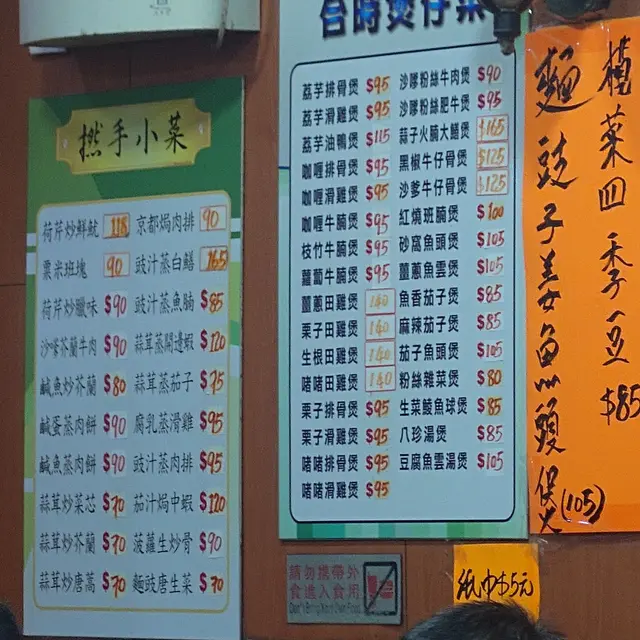 撚手小菜
荷芹炒鮮魷 118 京都焗肉排 90
粟米班塊 90 豉汁蒸白鱔 165
荷芹炒臘味 $90 豉汁蒸魚腩 $85
沙嗲芥蘭牛肉 $90 蒜茸蒸開邊蝦 $120
鹹魚炒芥蘭 $80 蒜茸蒸茄子 $75
鹹蛋蒸肉餅 $90 腐乳蒸滑雞 $95
鹹魚蒸肉餅 $90 豉汁蒸肉排 $95
蒜茸炒菜芯 $70 茄汁焗中蝦 $120
蒜茸炒芥蘭 $70 菠蘿生炒骨 $90
蒜茸炒唐蒿 $70 麵豉唐生菜 $70
合時煲仔菜
荔芋排骨煲 $95 沙嗲粉絲牛肉煲 $90
荔芋滑雞煲 $95 沙嗲粉絲肥牛煲 $95
荔芋油鴨煲 $115 蒜子火腩大鱔煲 $165
咖喱排骨煲 $95 黑椒牛仔骨煲 $125
咖喱滑雞煲 $95 沙爹牛仔骨煲 $125
咖喱牛腩煲 $95 紅燒班腩煲 $100
枝竹牛腩煲 $95 砂窩魚頭煲 $105
蘿蔔牛腩煲 $95 薑蔥魚雲煲 $105
薑蔥田雞煲 140 魚香茄子煲 $85
栗子田雞煲 140 麻辣茄子煲 $85
生根田雞煲 140 茄子魚頭煲 $105
啫啫田雞煲 140 粉絲雜菜煲 $80
栗子排骨煲 $95 生菜鯪魚球煲 $85
栗子滑雞煲 $95 八珍湯煲 $85
啫啫排骨煲 $95 豆腐魚雲湯煲 $105
啫啫滑雞煲 $95
欖菜四季豆 $85
麵豉子姜魚頭煲 (105)
請勿攜帶外
食進入食用
Don't Bring Your Own Food
紙巾$5元